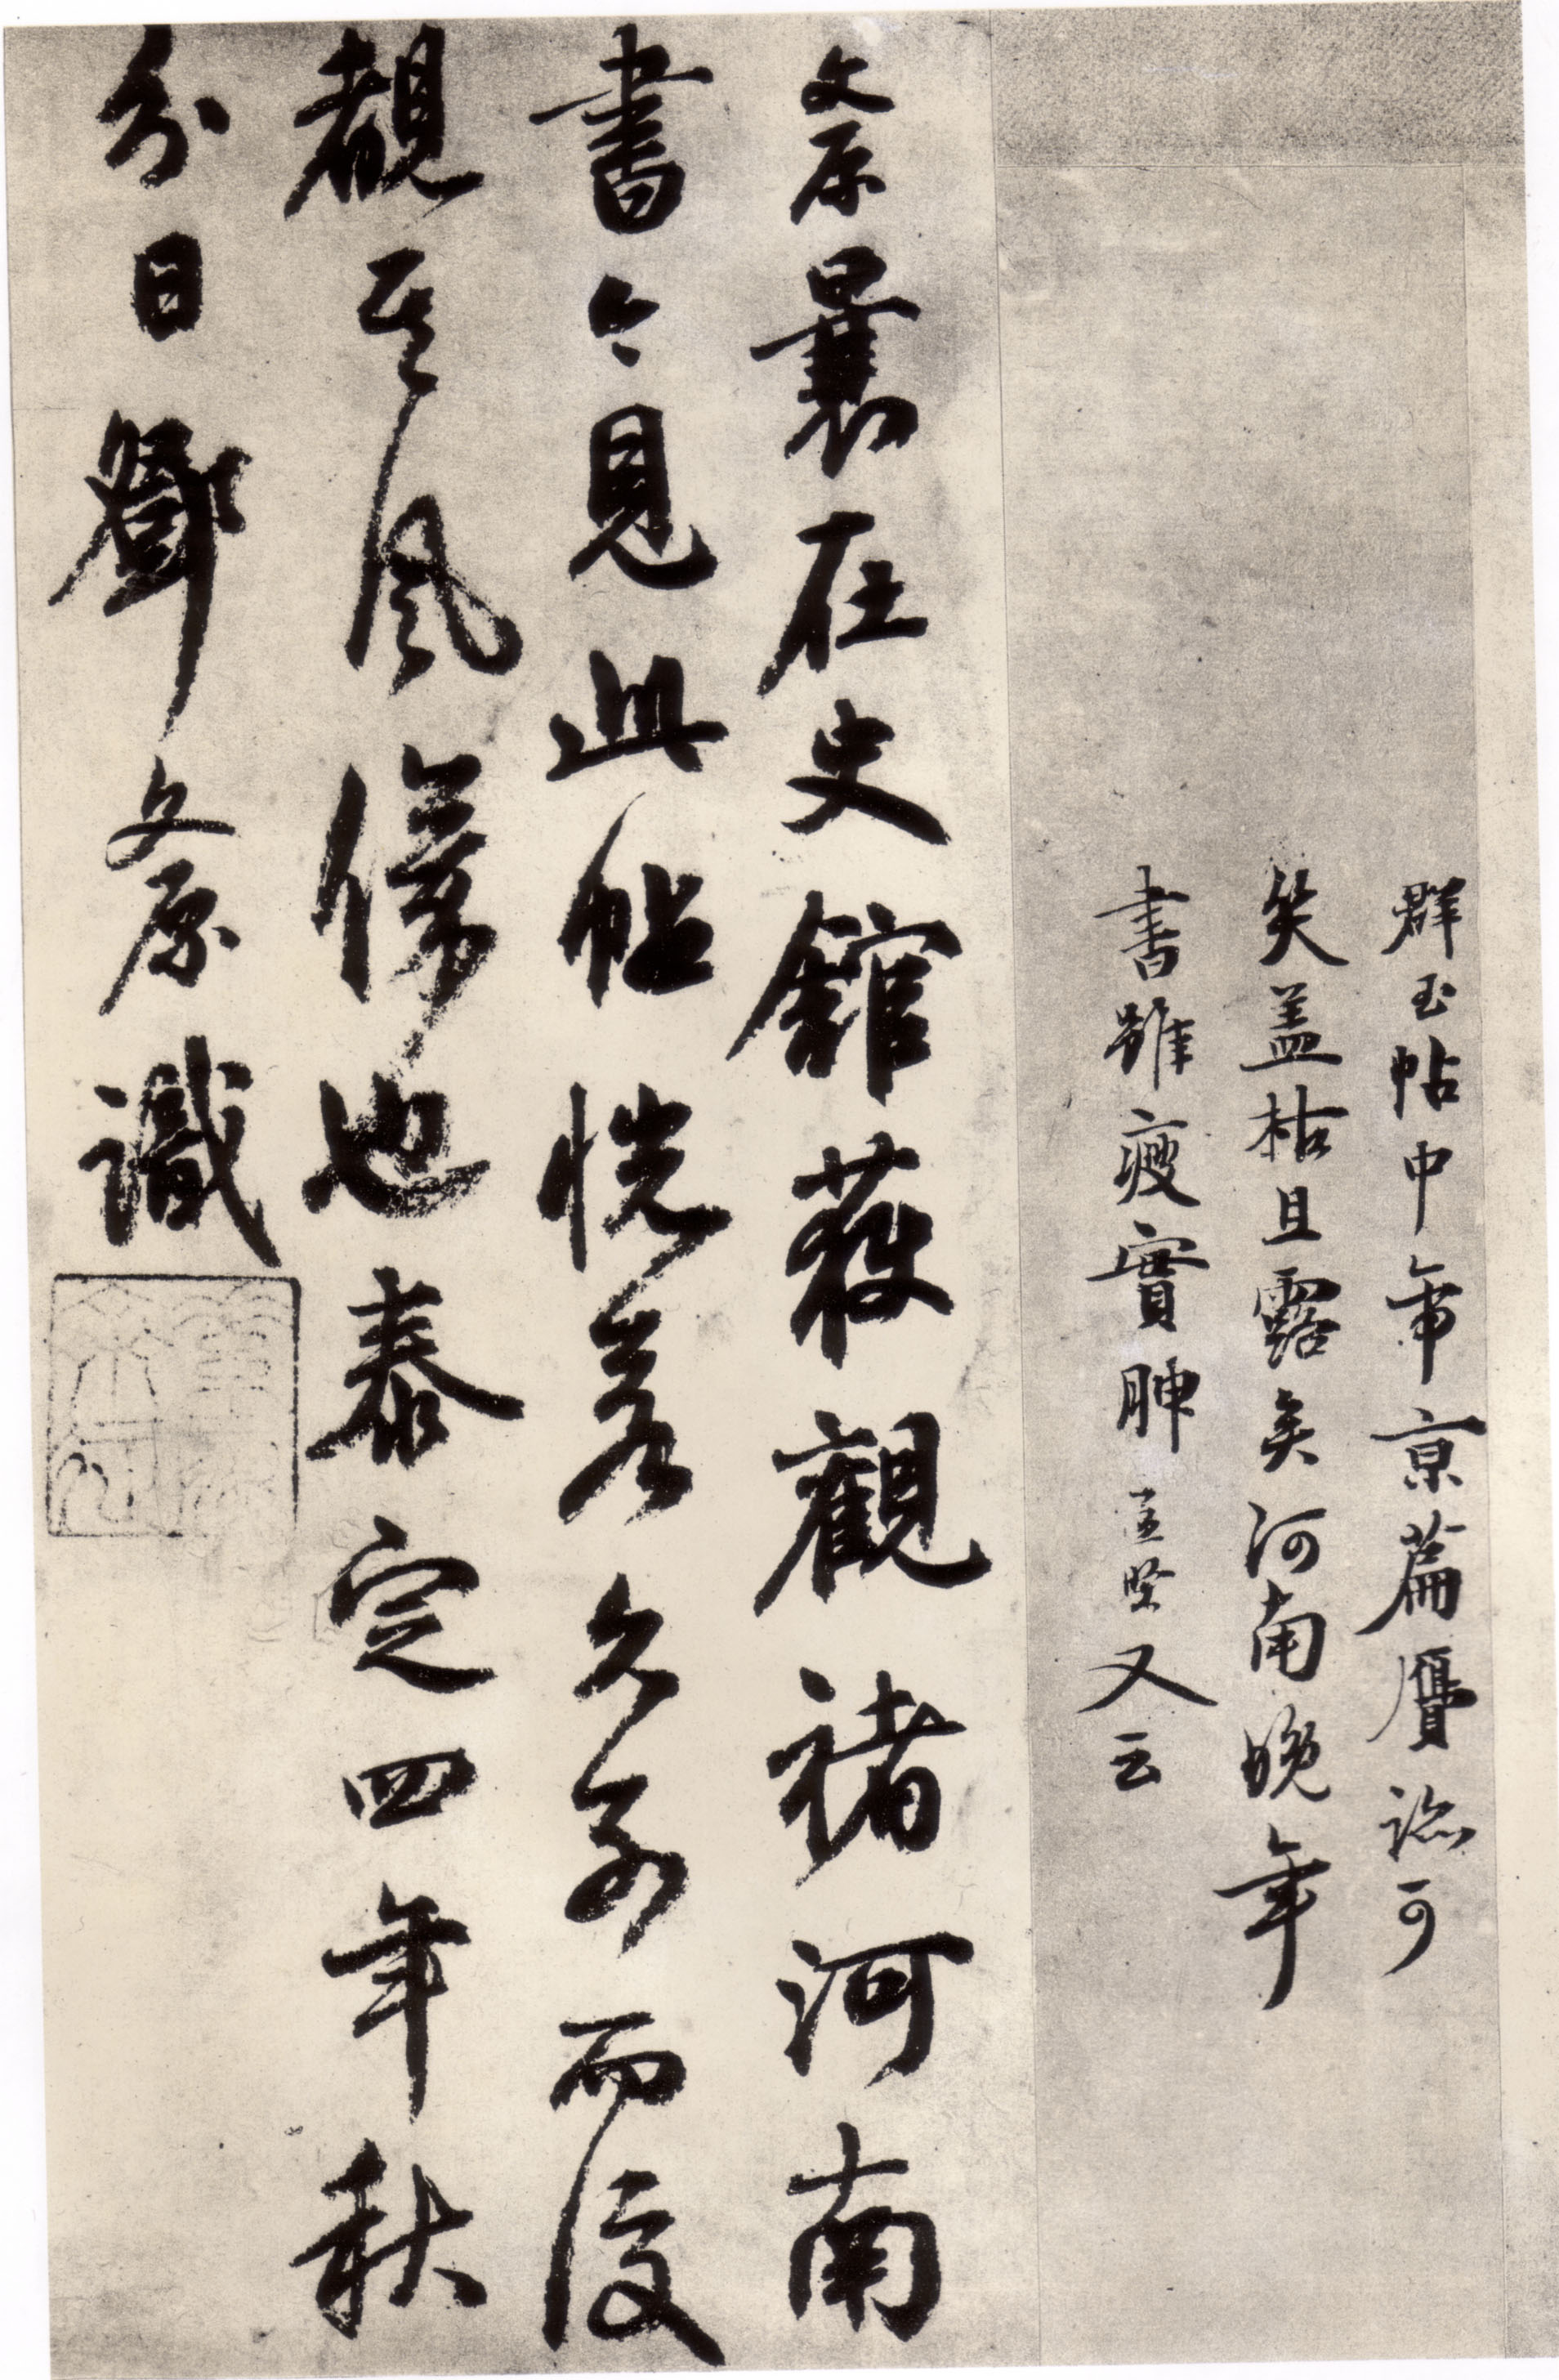 群玉帖中帝京篇贗跡可
笑盖枯且露矣河南晚年
書雖瘦實腴直堅又云
文原曩在史館獲觀褚河南
書今見此帖恍若久別而復
覩其風儀也泰定四年秋
分日鄧文原識